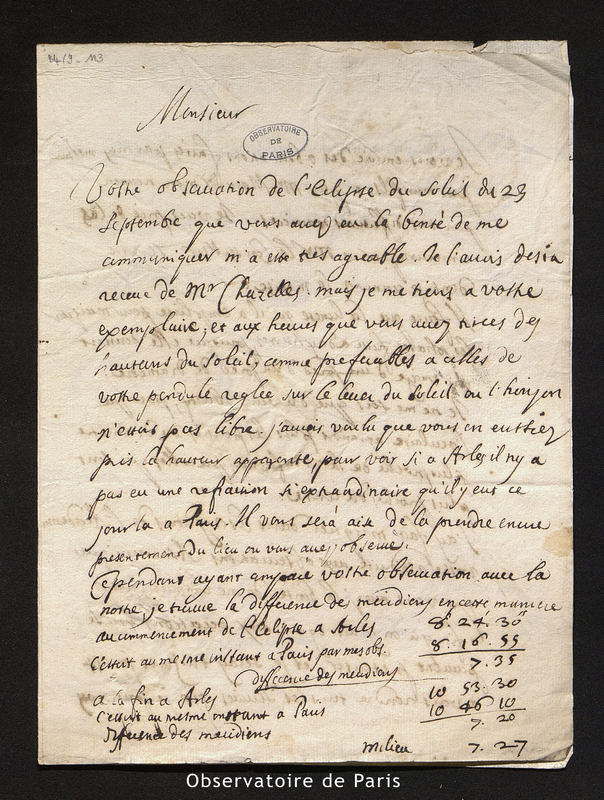 M 19 - 113
Monsieur
OBSERVATOIRE
DE
PARIS
Vostre observation de l'Eclipse du Soleil du 23
Septembre que vous avez eu la bonté de me
communiquer m'a esté tres agreable. Je l'avois desia
receue de Mr Chazelles. mais je me tiens a vostre
exemplaire, et aux heures que vous avez tirees des
hauteurs du soleil, comme preferables a celles de
vostre pendule reglée sur le lever du Soleil ou l'horizon
n'estoit pas libre. j'aurois voulu que vous en eussiez
pris la hauteur apparente, pour voir si a Arles il n'y a
pas eu une refraction si extraordinaire qu'il y eut ce
jour la a Paris. Il vous sera aisé de la prendre encore
presentement du lieu ou vous avez observé.
Cependant ayant comparé vostre observation avec la
nostre, je trouve la difference des meridiens en cette maniere
au commencement de l'Eclipse a Arles 8. 24. 30
C'estoit au mesme instant a Paris par mes obs. 8. 16. 55
difference des meridiens 7. 35
a la fin a Arles 10 53. 30
c'estoit au mesme instant a Paris 10 46 10
difference des meridiens 7. 20
milieu 7. 27
Observatoire de Paris